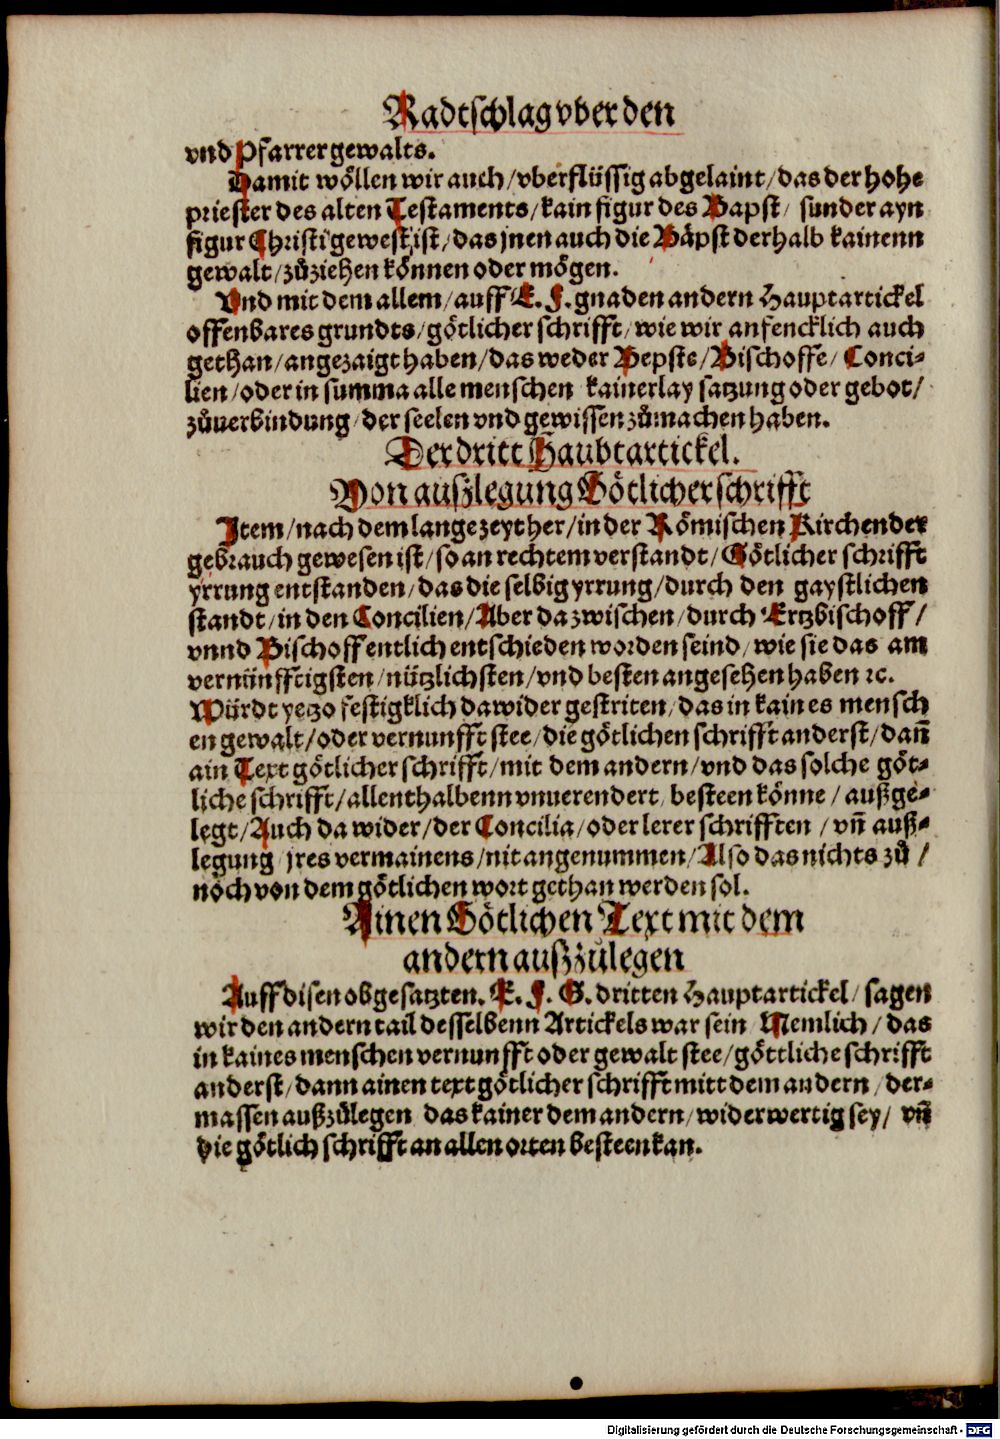 Radtschlag vber den
vnd Pfarrer gewalts.
Damit wöllen wir auch / vberflüssig abgelaint / das der hohe
priester des alten Testaments / kain figur des Bapst / sunder ayn
figur Christi gewest ist / das jnen auch die Bäpst derhalb kainenn
gewalt / zůziehen können oder mögen.
Vnd mit dem allem / auff E. F. gnaden andern Hauptartickel
offenbares grundts / götlicher schrifft / wie wir anfencklich auch
gethan / angezaigt haben / das weder Bepste / Bischoffe / Conci-
lien / oder in summa alle menschen kainerlay satzung oder gebot /
zůuerbindung / der seelen vnd gewissen zůmachen haben.
Der dritt Haubtartickel.
Von außlegung Götlicher schrifft
Item / nach dem lange zeyt her / in der Römischen Kirchen der
gebrauch gewesen ist / so an rechtem verstandt / Götlicher schrifft
yrrung entstanden / das die selbig yrrung / durch den gaystlichen
standt / in den Concilien / Aber da zwischen / durch Ertzbischoff /
vnnd Bischoff entlich entschieden worden seind / wie sie das am
vernünfftigsten / nützlichsten / vnd besten angesehen haben ꝛc.
Würdt yetzo festigklich dawider gestriten / das in kaines mensch
en gewalt / oder vernunfft stee / die götlichen schrifft anderst / dañ
ain Text götlicher schrifft / mit dem andern / vnd das solche göt-
liche schrifft / allenthalbenn vnuerendert / besteen könne / außge-
legt / Auch da wider / der Concilia / oder lerer schrifften / vñ auß-
legung / jres vermainens / nit angenummen / Also das nichts zů /
noch von dem götlichen wort gethan werden sol.
Ainen Götlichen Text mit dem
andern außzůlegen
Auff disen obgesatzten. E. F. G. dritten Hauptartickel / sagen
wir den andern tail desselbenn Artickels war sein Nemlich / das
in kaines menschen vernunfft oder gewalt stee / göttliche schrifft
anderst / dann ainen text götlicher schrifft mitt dem andern / der-
massen außzůlegen das kainer dem andern / widerwertig sey / vñ
die götlich schrifft an allen orten besteen kan.
Digitalisierung gefördert durch die Deutsche Forschungsgemeinschaft - DFG